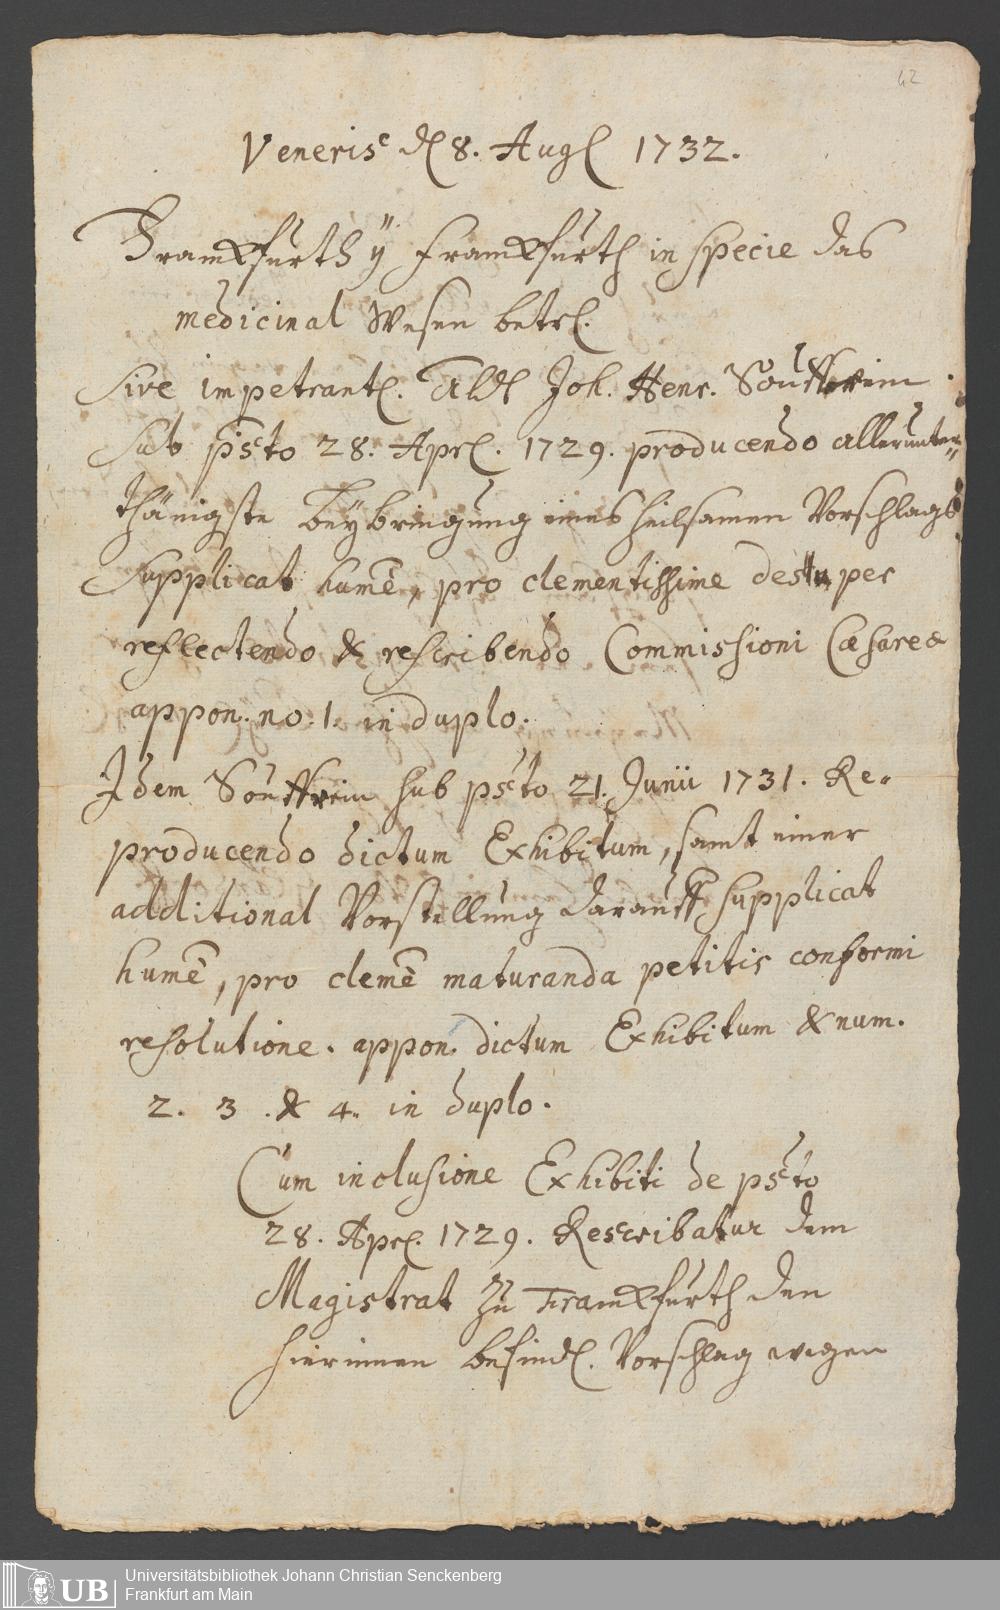 42
Veneris d. 8. Aug. 1732.
Franckfurth ÿ Franckfurth in specie das
medicinal Wesen betr.
sive impetrant. Joh. Henr.
sub psto 28. Apr. 1729. producendo allerunter=
thänigste beÿbringung eines heilsamen Vorschlags
supplicat humē, pro clementissime desuper
reflectendo & rescribendo Commissioni Cæsareæ
appon. no. 1. in duplo.
Idem sub psto 21. Junii 1731. Re=
producendo dictum Exhibitum, samt einer
additional Vorstellung darauff supplicat
humē, pro clemē maturanda petitis conformi
resolutione. appon. dictum Exhibitum & num.
2. 3. & 4. in duplo.
Cum inclusione Exhibiti de psto
28. Apr. 1729. Rescribatur dem
Magistrat zu Franckfurth den
hierinnen befindl. Vorschlag wegen
UB
Universitätsbibliothek Johann Christian Senckenberg
Frankfurt am Main